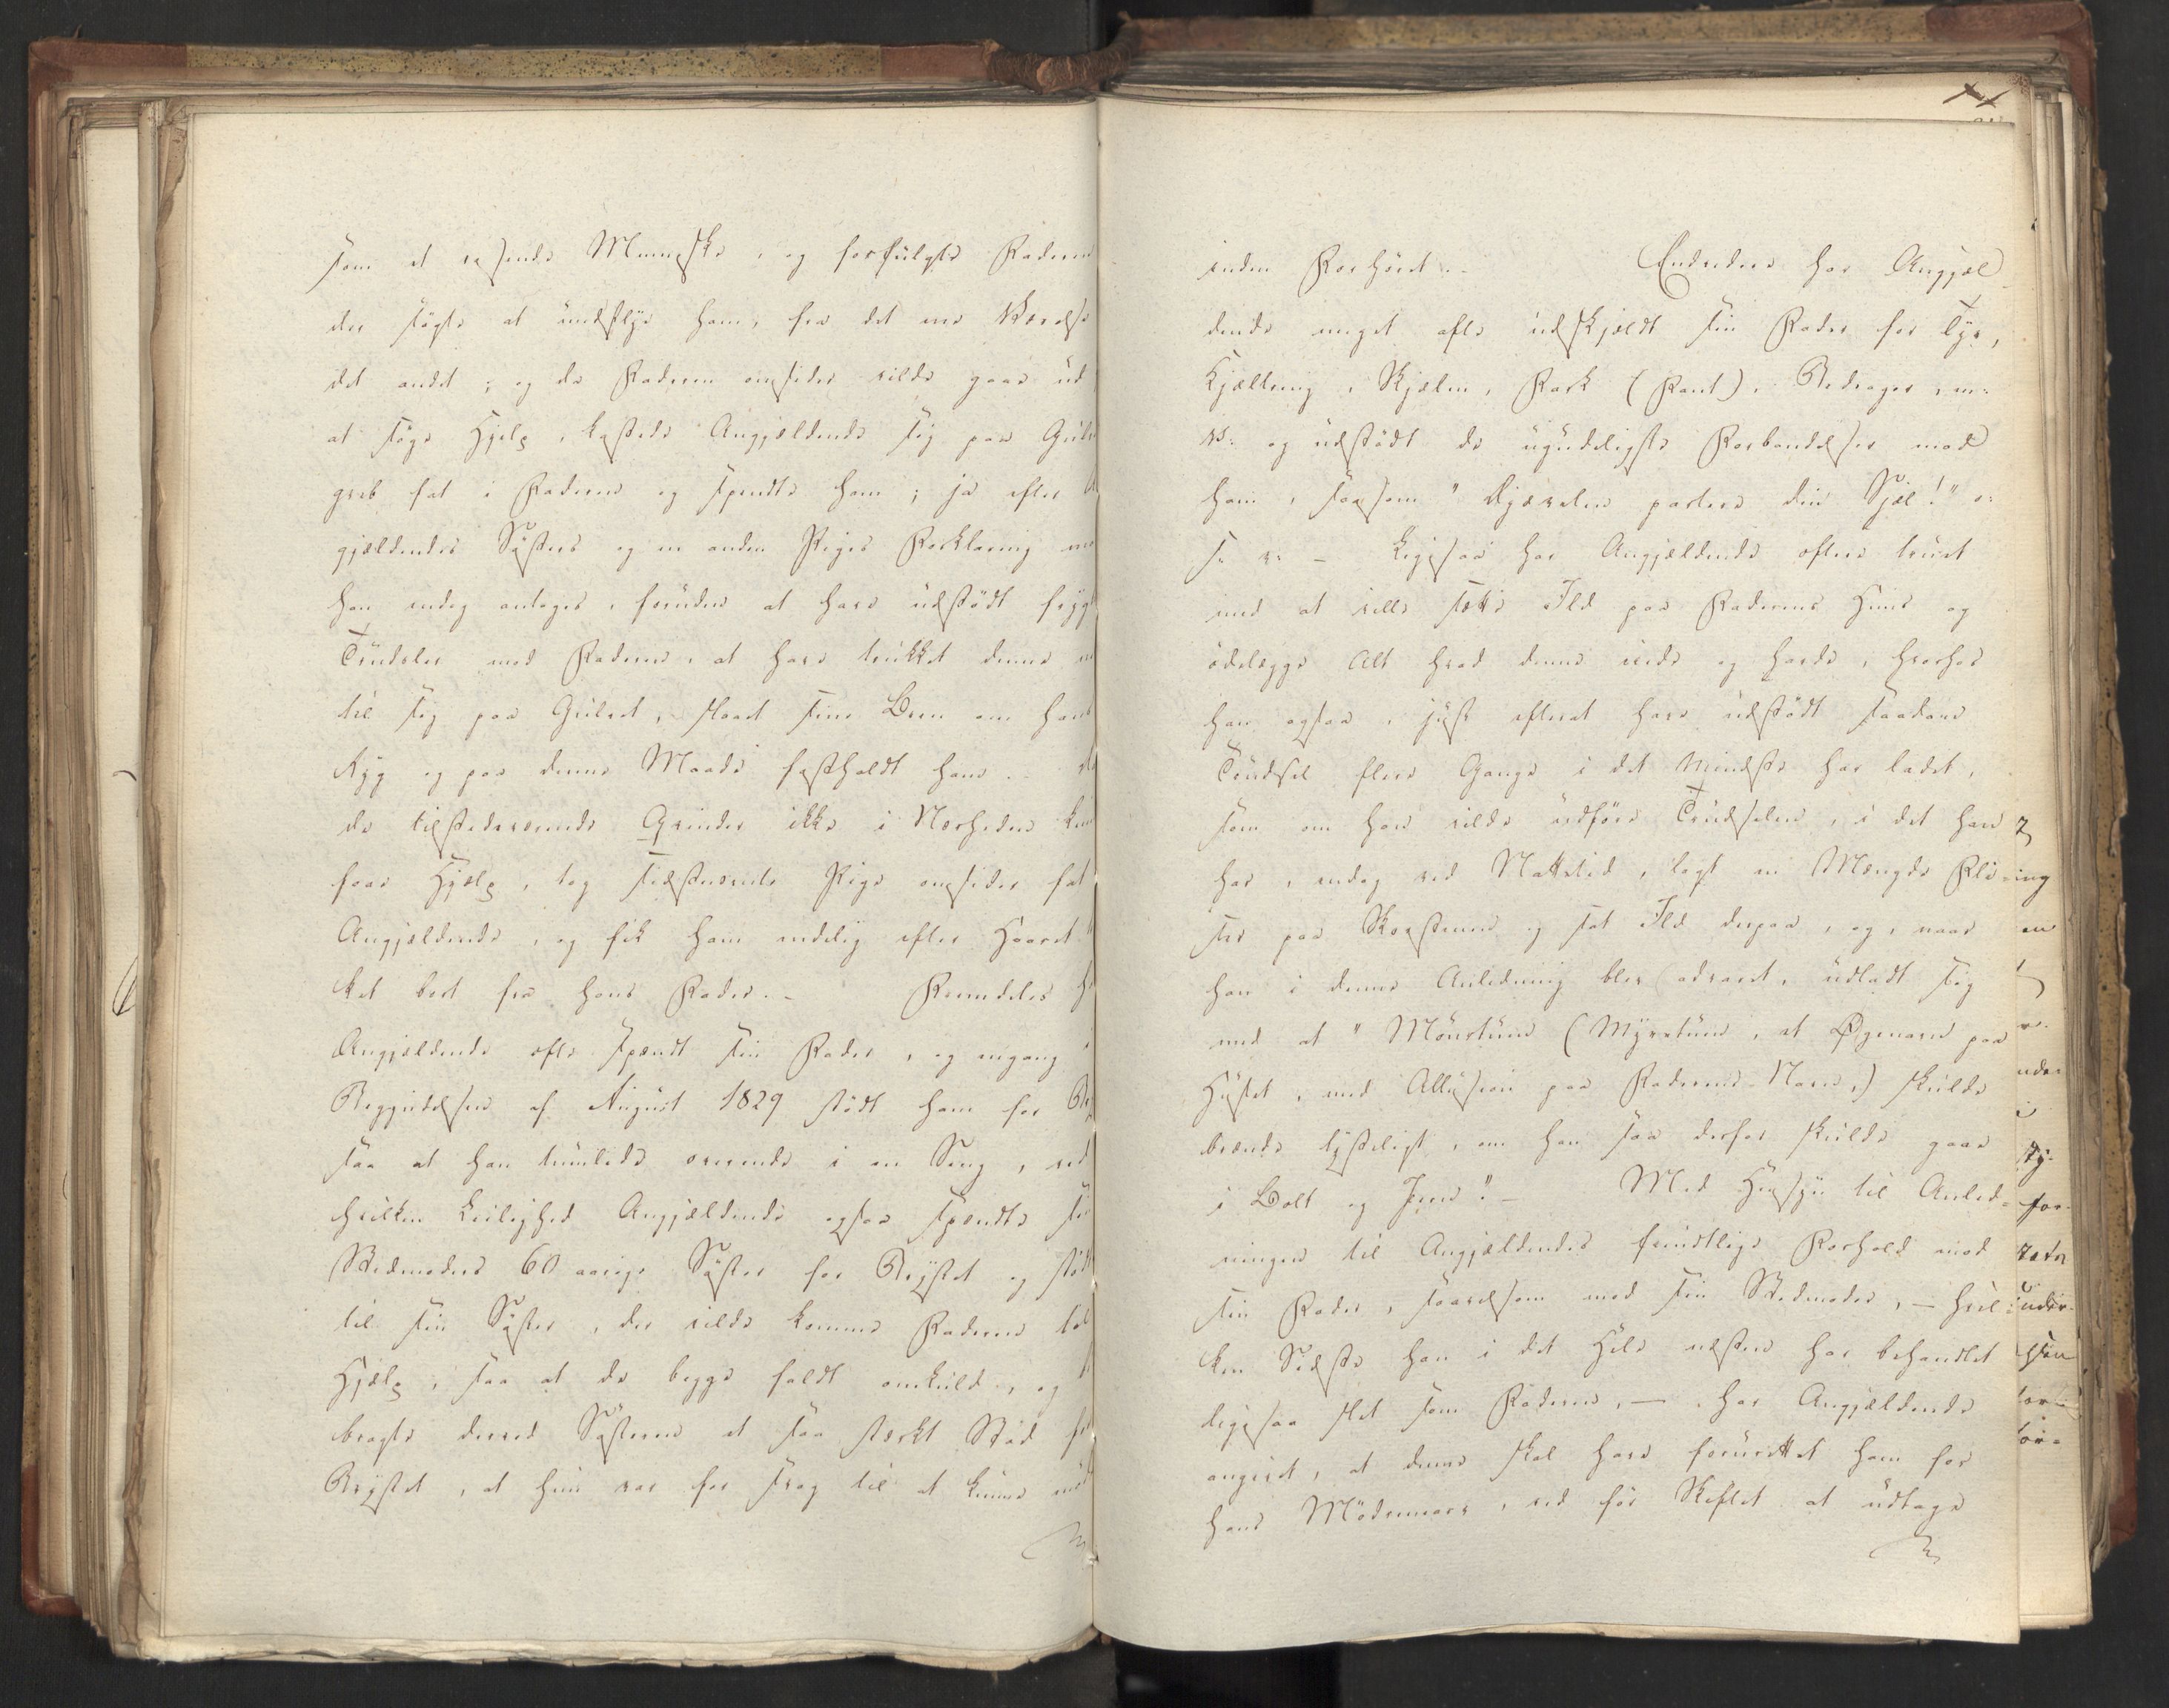 som et rasende Menneske, og forfulgte Faderen
der søgte at undflye ham, fra det ene Værelse
det andet; og da Faderen omsider vilde gaae ud
at søge Hjelp, kastede Angjældende sig paa Gulv
greb fat i Faderen og spendte ham; ja efter A
gjældendes Søsters og en anden Piges Forklaring
han endog antages, foruden at have udstødt frygt
Trudsler mod Faderen, at have trukket denne
til sig paa Gulvet, slaaet sine Been om hans
Ryg og paa denne Maade fastholdt ham. - 
de tilstedeværende Qvinder ikke i Nærheden kun
faae Hjælp, tog sidstnævnte Pige omsider fat
Angjældende, og fik ham endelig efter Haaret
ket bort fra hans Fader. - Fremdeles h
Angjældende ofte spændt sin Fader, og engang i
Begyndelsen af August 1829 stødt ham for Br
saa at han tumlede overende i en Seng, ved
hvilken Leilighed Angjældende ogsaa spændte sin
Stedmoders 60 aarige Søster for Brystet og stødt
til sin Søster, der vilde komme Faderen til
Hjælp, saa at de begge faldt omkuld, og
bragte derved Søsteren et saa stærkt Stød for
Brystet, at hun var for svag til at kunne mød
inden Forhøret. - Endvidere har Angjæl
dende meget ofte udskjældt sin Fader for Tyv,
Kjæltring, Skjælm, Fark (Fant), Bedrager, m:
v: og udstødt de ugudeligste Forbandelser mod
ham, saasom "Djævelen partere din Sjæl!" o:
s. v: - Ligesaa har Angjældende oftere truet
med at ville sætte Ild paa Faderens Huus og
ødelægge Alt hvad denne eiede og havde, hvorhos
han ogsaa, just efterat have udstødt saadan
Trudsel flere Gange i det mindste har ladet,
som om han vilde udføre Trudselen, i det han
har, endog ved Nattetid, lagt en Mængde Fli-
ser paa Skorstenen og sat Ild derpaa, og, naar
han i denne Anledning blev advaret, udladt sig
med at "Mønstuen (Myrstuen, et Øgenavn paa
Huset, med Allusion paa Faderens Navn,) skulde
brænde lysteligt, om han saa derfor skulde gaae
i Bolt og Jern". - Med Hensyn til Anled-
ningen til Angjældendes fiendtlige Forhold mod
sin Fader, saavelsom mod sin Stedmoder, - hvil-
ken Sidste han i det Hele næsten har behandlet
ligesaa slet som Faderen, - har Angjældende
angivet, at denne skal have forurettet ham for
hans Mødrenearv, ved før Skiftet at udtage